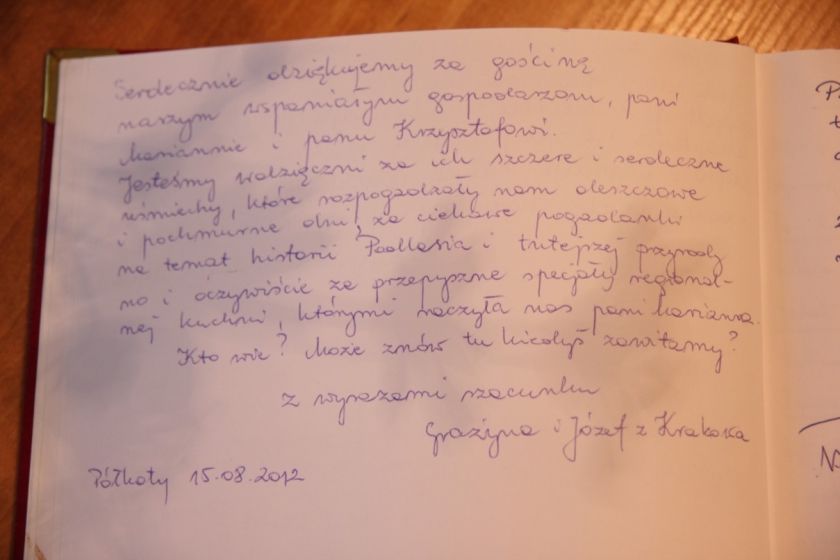 Serdecznie dziękujemy za gościnę
naszym wspaniałym gospodarzom, pani
Mariannie i panu Krzysztofowi.
Jesteśmy wdzięczni za ich szczere i serdeczne
uśmiechy, które rozpogadzały nam deszczowe
i pochmurne dni, za ciekawe pogadanki
na temat historii Podlasia i tutejszej przyrody
no i oczywiście za przepyszne specjały regional-
nej kuchni, którymi raczyła nas pani Marianna.
Kto wie? Może znów tu kiedyś zawitamy?
z wyrazami szacunku
Grażyna i Józef z Krakowa
Półkoty 15.08.2012